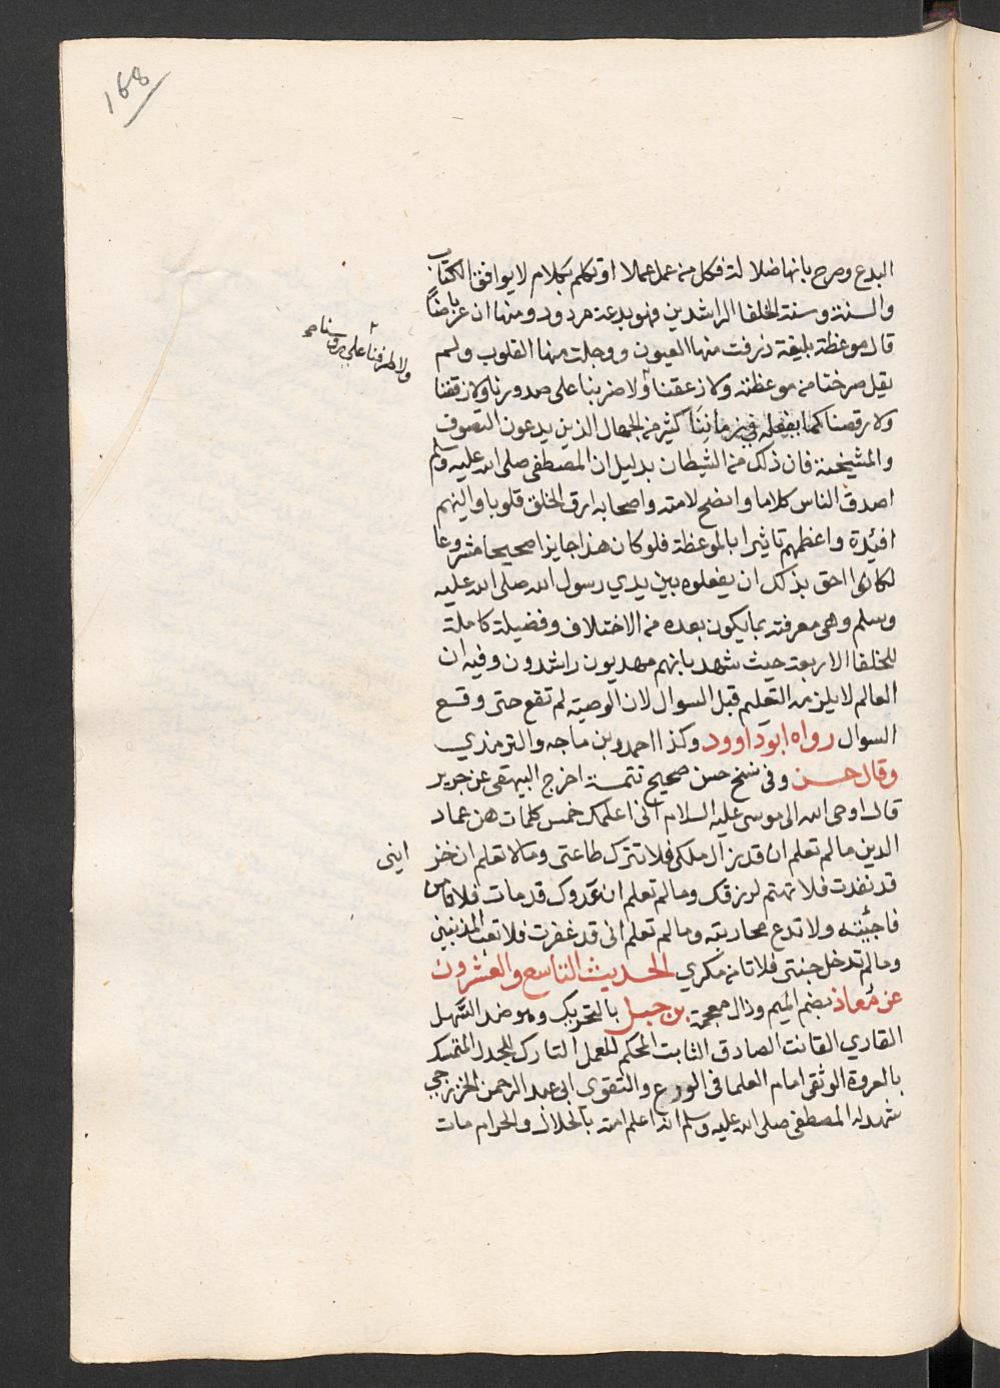 168
البدع وصرح بانها ضلالة فكل من عمل عملا او تكلم بكلام لا يوافق الكتاب
والسنة وسنة الخلفا الراشدين فهو بدعة مردود ومنها ان عرباضا
قال موعظة بليغة ذرفت منها العيون ووجلت منها القلوب ولم
يقل صرخنا من موعظته ولا زعقنا ولا ضربنا على صدورنا ولا زقفنا
ولا طرقنا على روسنا صح
ولا رقصنا كما يفعله في زماننا كثير من الجهال الذين يدعون التصوف
والمشيخة فان ذلك من الشيطان بدليل ان المصطفى صلى الله عليه وسلم
اصدق الناس كلاما وانصح لامته واصحابه ارق الخلق قلوبا والينهم
افئدة واعظهم تاثيرا بالموعظة فلو كان هذا جايزا صحيحا مشروعا
لكانوا احق بذلك ان يفعلوه بين يدي رسول الله صلى الله عليه
وسلم وهي معرفته بما يكون بعده من الاختلاف وفضيلة كاملة
للخلفا الاربعة حيث شهد بانهم مهديون راشدون وفيه ان
العالم لا يلزمه التعليم قبل السوال لان الوصية لم تقع حتى وقع
السوال رواه ابو داوود وكذا احمد وبن ماجه والترمذي
وقال حسن وفي نسخ حسن صحيح تتمة اخرج البيهقي عن جرير
قال اوحى الله الى موسى عليه السلام اني اعلمك خمس كلمات هن عماد
الدين ما لم تعلم ان قد زال ملكي فلا تترك طاعتي وما لا تعلم ان خز
ايني
قد نفدت فلا تهتم لرزقك وما لم تعلم ان عدوك قد مات فلا تامن
فاجيته ولا تدع محاربته وما لم تعلم اني قد غفرت فلا تعب المذنبين
وما لم تدخل جنتي فلا تامن مكري الحديث التاسع والعشرون
عن معاذ بضم الميم وذال معجمة بن جبل بالتحريك وهو ضد السهل
القاري القانت الصادق الثابت المحكم للعمل التارك للجدل المتمسك
بالعروة الوثقى امام العلما في الورع والتقوى ابي عبد الرحمن الخزرجي
شهد له المصطفى صلى الله عليه وسلم انه اعلم امته بالحلال والحرام مات